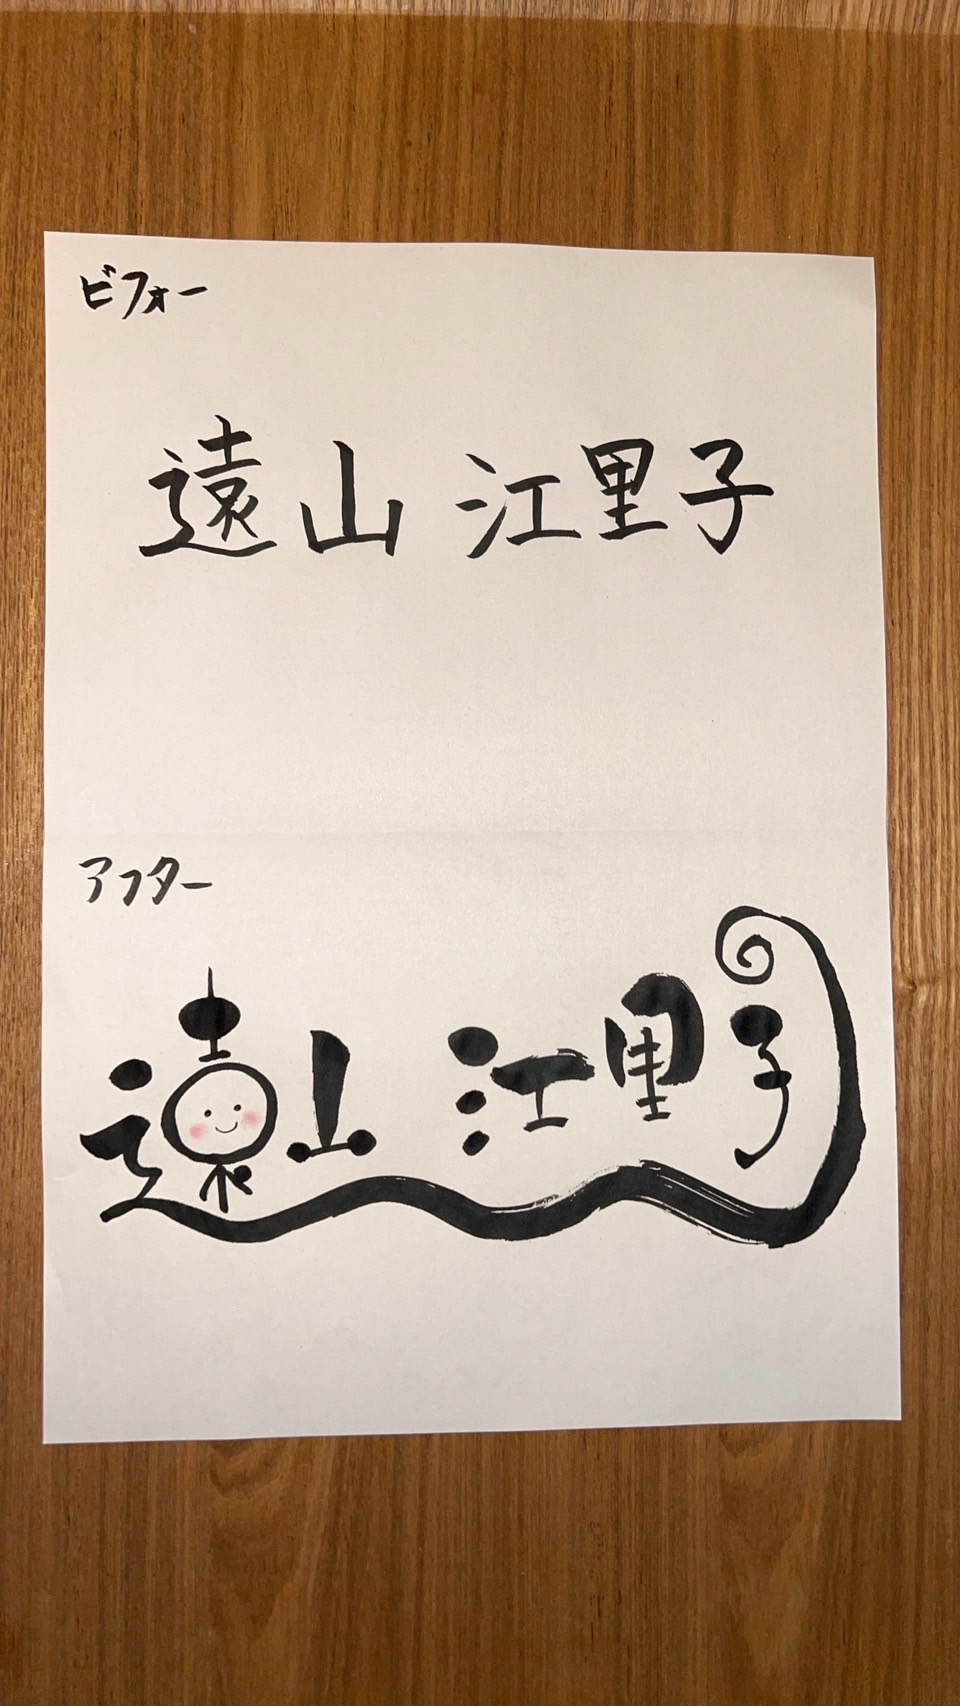 ビフォー
遠山 江里子
アフター
遠山 江里子